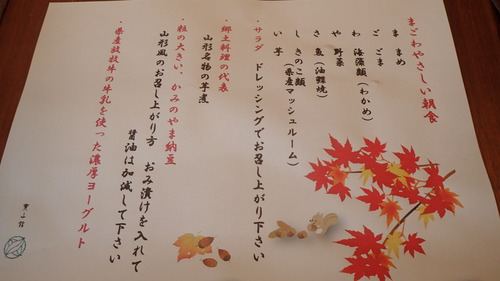 まごわやさしい朝食
ま まめ
ご ごま
わ 海藻類(わかめ)
や 野菜
さ 魚(油鰈焼)
し きのこ類
(県産マッシュルーム)
い 芋
・サラダ ドレッシングでお召し上がり下さい
・郷土料理の代表
山形名物の芋煮
・粒の大きい、かみのやま納豆
山形風のお召し上がり方 おみ漬けを入れて
醤油は加減して下さい
・県産放牧牛の牛乳を使った濃厚ヨーグルト